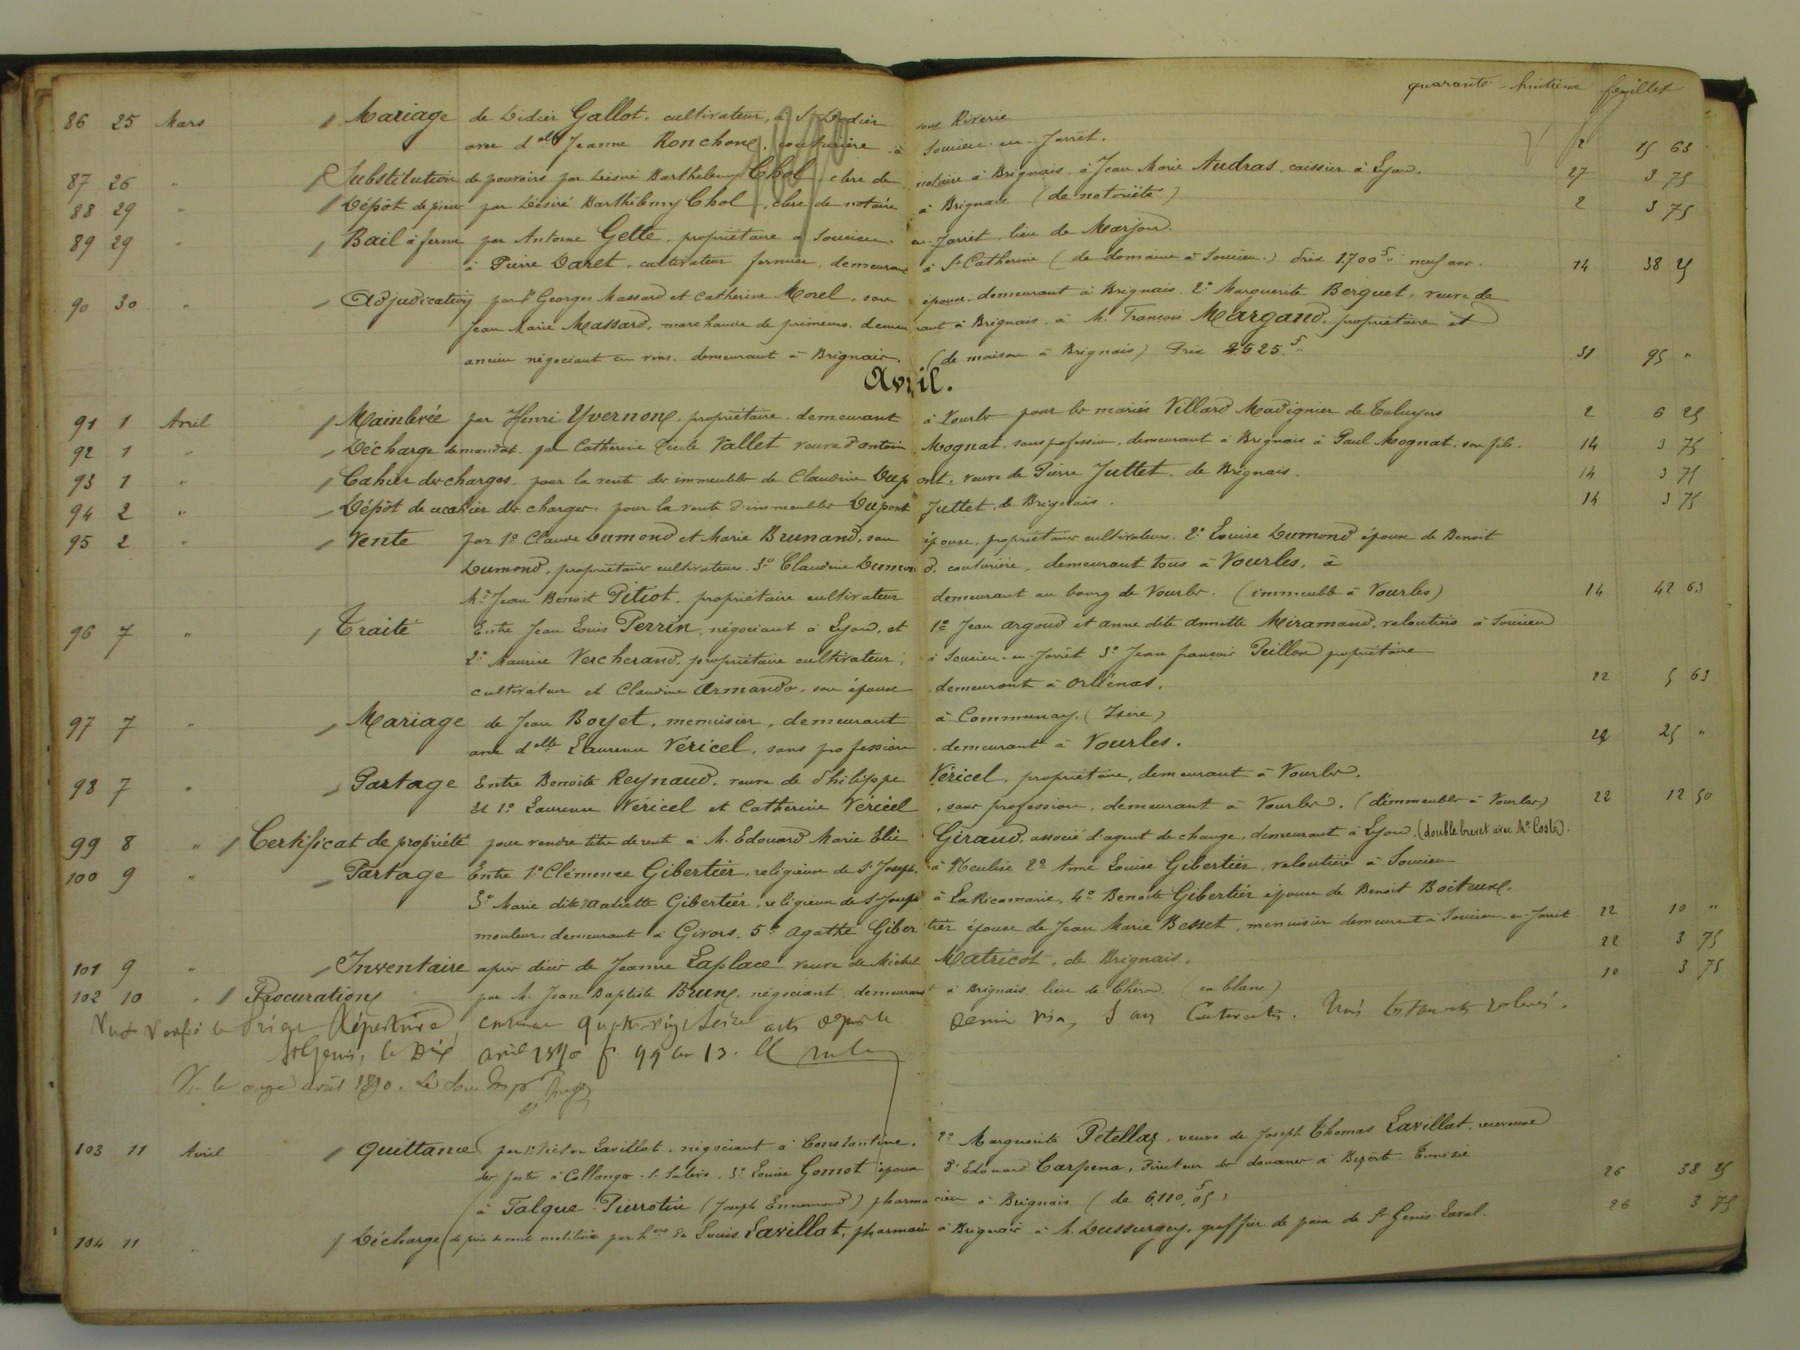 quarante-huitième feuillet
1890
86 25 Mars / Mariage de Didier Gallot, cultivateur, à St Didier sous Riverie
avec delle Jeanne Ronchon, couturière, à Soucieu-en-Jarret. 2 15 63
87 26 " / Substitution de pouvoirs par Désiré Barthélemy Chol, clerc de notaire à Brignais, à Jean Marie Audras, caissier à Lyon. 27 3 75
88 29 " / Dépôt de pièce par Désiré Barthélemy Chol, clerc de notaire à Brignais (de notoriété) 2 3 75
89 29 " / Bail à ferme par Antoine Gelte, propriétaire à Soucieu-en-Jarret, lieu de Marjon.
à Pierre Daret, cultivateur fermier, demeurant à Ste Catherine (de domaine à Soucieu.) Prix 1.700f. neuf ans. 14 38 25
90 30 " / Adjudication par 1° Georges Massard et Catherine Morel, son épouse, demeurant à Brignais 2° Marguerite Berguet, veuve de
Jean Marie Massard, marchande de primeurs, demeurant à Brignais à M. François Margand, propriétaire et
ancien négociant en vins, demeurant à Brignais. (de maison à Brignais) Prix 2.525.f" 31 95 "
Avril.
91 1 Avril / Mainlevée par Henri Yvernon, propriétaire, demeurant à Vourles pour les mariés Villard Madignier de Taluyers 2 6 25
92 1 " / Décharge de mandat par Catherine Cécile Vallet veuve d'Antoine Mognat, sans profession, demeurant à Brignais à Paul Mognat, son fils. 14 3 75
93 1 " / Cahier des charges pour la vente des immeubles de Claudine Dupont, veuve de Pierre Juttet, de Brignais. 14 3 75
94 2 " / Dépôt de cahier des charges, pour la vente d'immeubles Dupont Juttet, de Brignais. 14 3 75
95 2 " / Vente par 1° Claude Dumond et Marie Brunand, son épouse, propriétaires cultivateurs. 2° Louise Dumond épouse de Benoit
Dumond, propriétaires cultivateurs. 3° Claudine Dumond, couturière, demeurant tous à Vourles, à
Mr Jean Benoit Pitiot, propriétaire cultivateur demeurant au bourg de Vourles. (immeuble à Vourles) 14 42 63
96 7 " / Traité Entre Jean Louis Perrin, négociant à Lyon, et 1° Jean Argoud et Anne dite Annette Miramand, veloutiers à Soucieu
2° Maurice Vercherand, propriétaire cultivateur, à Soucieu-en-Jarret 3° Jean François Peillon propriétaire
cultivateur et Claudine Armando, son épouse demeurant à Orliénas. 22 5 63
97 7 " / Mariage de Jean Boyet, menuisier, demeurant à Communay. (Isère)
avec delle Laurence Véricel, sans profession demeurant à Vourles. 22 25 "
98 7 " / Partage Entre Benoite Reynaud, veuve de Philippe Véricel, propriétaire, demeurant à Vourles.
Et 1° Laurence Véricel et Catherine Véricel, sans profession, demeurant à Vourles. (d'immeubles à Vourles) 22 12 50
99 8 " / Certificat de propriété pour vendre titre de rente à M. Edouard Marie Elie Giraud, associé d'agent de change, demeurant à Lyon. (double brevet avec Me Coste).
100 9 " / Partage Entre 1° Clémence Gibertier, religieuse de St Joseph, à Neulise 2° Anne Louise Gibertier, veloutière à Soucieu
3° Marie dite Mariette Gibertier, religieuse de St Joseph à La Ricamarie, 4° Benoite Gibertier épouse de Benoit Boiteux,
mouleur, demeurant à Givors. 5° Agathe Gibertier épouse de Jean Marie Besset, menuisier demeurant à Soucieu-en-Jarret 22 10 "
101 9 " / Inventaire après décès de Jeanne Laplace veuve de Michel Matricot, de Brignais. 22 3 75
102 10 " / Procuration par M. Jean Baptiste Brun, négociant, demeurant à Brignais lieu de Chéron (en blanc) 10 3 75
Vu & Vérifié le Présent Répertoire, contenant quatre-vingt-seize actes depuis le dernier visa, Trois
St Genis, le Dix Avril 1890 f° 99 Ce 13.
Vu le onze avril 1890.
103 11 Avril / Quittance par 1° Victor Lavillat, négociant à Constantine. 2° Marguerite Petellaz, veuve de Joseph Thomas Lavillat, receveuse
des postes à Collonges-s-Salève, 3° Louise Gomot épouse d'Edouard Carpena, Directeur des douanes à Bizerte Tunisie
à Falque-Pierrotin (Joseph Ennemond) pharmacien à Brignais (de 6,110,f05) 26 38 25
104 11 " / Décharge de prix de vente mobilière par hers de Louis Lavillat, pharmacien à Brignais à M. Dussurgey, greffier de paix de St Genis-Laval. 26 3 75